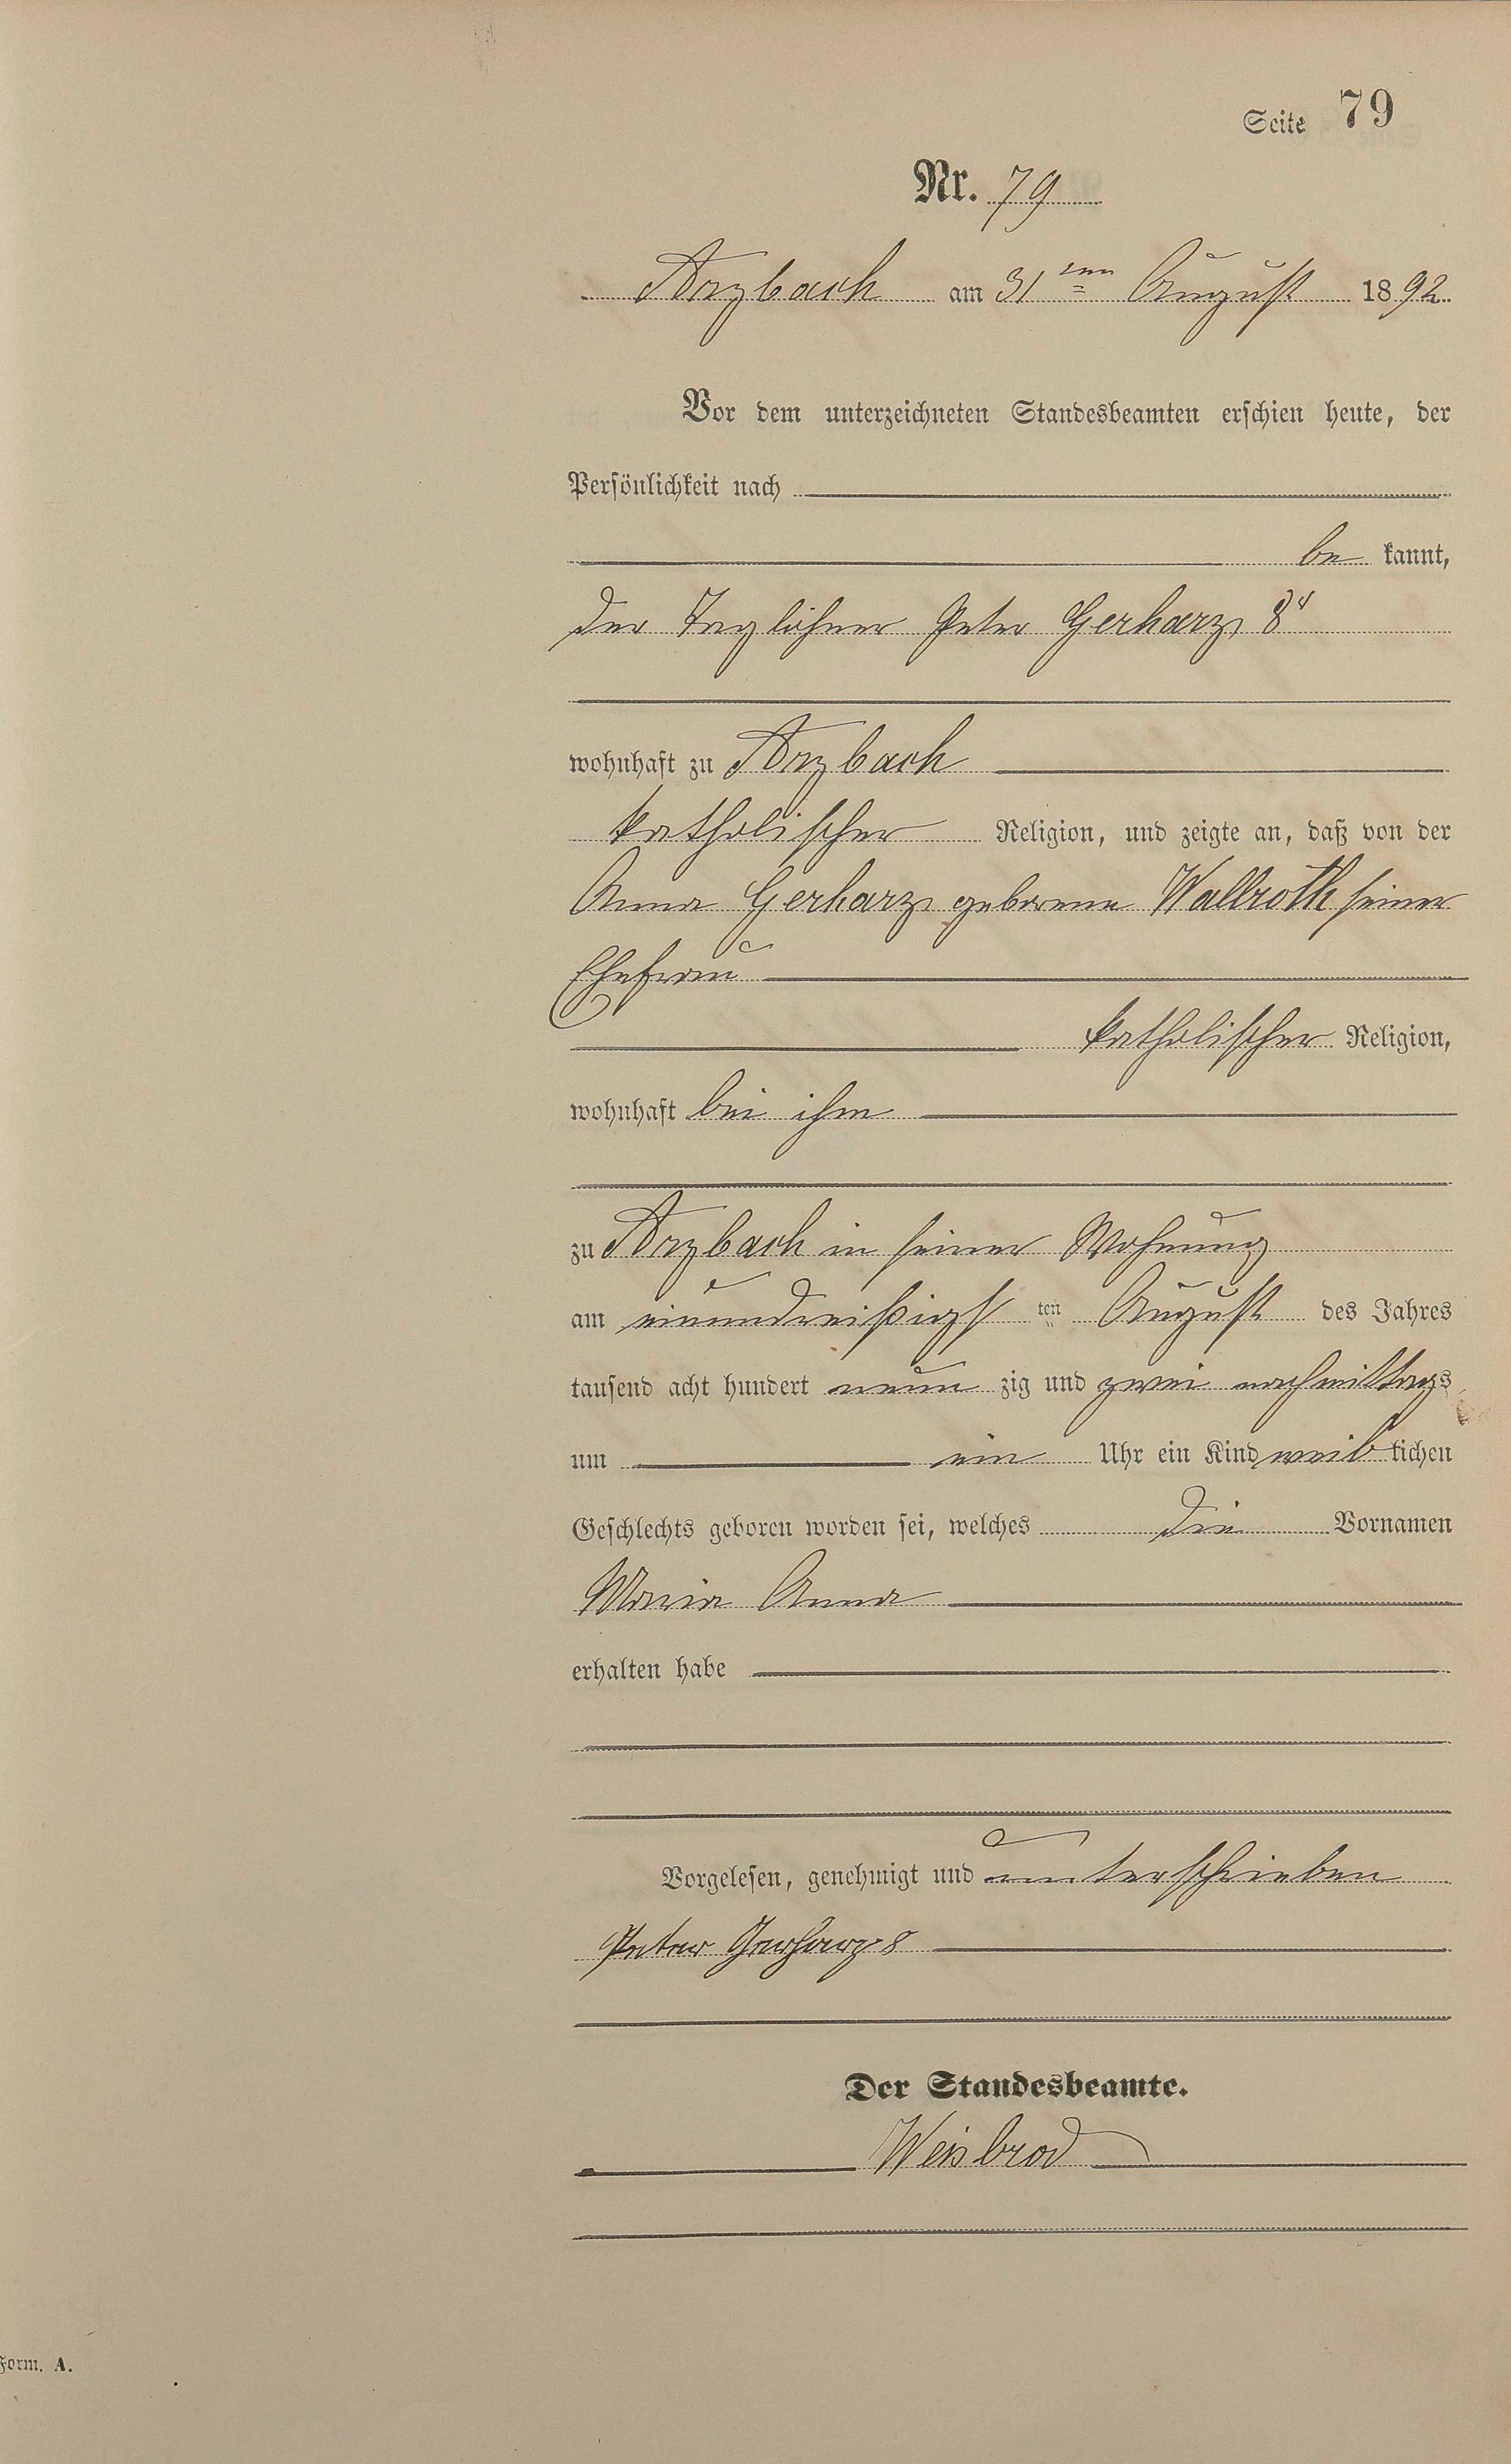 Seite 79
Nr. 79
Arzbach am 31ten August 1892
Vor dem unterzeichneten Standesbeamten erschien heute, der
Persönlichkeit nach
be kannt,
der Taglöhner Peter Gerharz 8r
wohnhaft zu Arzbach
katholischer Religion, und zeigte an, daß von der
Anna Gerharz geborene Wallroth seiner
Ehefrau
katholischer Religion,
wohnhaft bei ihm
zu Arzbach in seiner Wohnung
am einundreißigs ten August des Jahres
tausend acht hundert neun zig und zwei nachmittags
um ein Uhr ein Kind weib lichen
Geschlechts geboren worden sei, welches die Vornamen
Maria Anna
erhalten habe
Vorgelesen, genehmigt und unterschrieben
Peter Gerharz 8
Der Standesbeamte.
Weisbrod
Form. A.